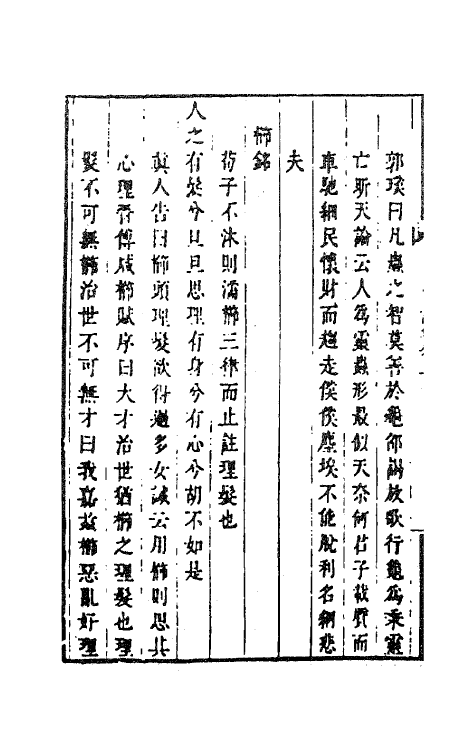 郭璞曰凡蟲之智莫善於龜邵謁放歌行龜為乘靈
亡斯天論云人為靈蟲形最似天奈何君子載質而
車馳網民懷財而趨走僕僕塵埃不能脫利名網悲
夫
櫛銘
荀子不沐則濡櫛三律而止註理髮也
人之有髮兮旦旦思理有身兮有心兮胡不如是
真人告曰櫛頭理髮欲得過多女誡云用櫛則思其
心理香傅咸櫛賦序曰大才治世猶櫛之理髮也理
髮不可無櫛治世不可無才曰我嘉茲櫛惡亂好理